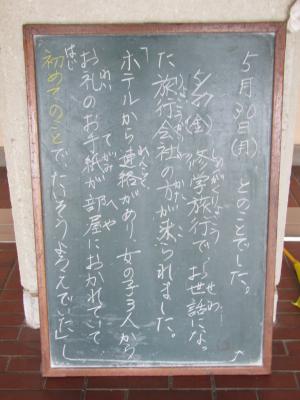 5月30日(月) とのことでした。
5/27(金)修学旅行で、お世話になっ
た旅行会社の方が来られました。
「ホテルから連絡があり、女の子3人から
お礼のお手紙が部屋におかれていて
初めてのことでたいそうよろこんでいた」